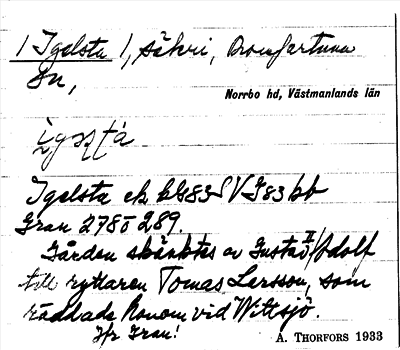 1 Igelsta 1, säteri, Romfartuna
sn,
Norrbo hd, Västmanlands län
Igelsta ek. kG83 S V G83 bb
Grau 278 o 289.
Gården skänktes av Gustav II Adolf
till ryttaren Tomas Larsson, som
räddade honom vid Wittsjö.
Jfr Grau!
A. THORFORS 1933